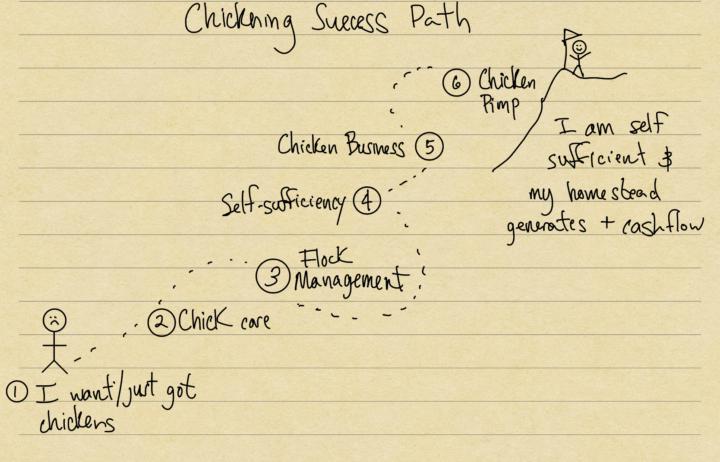 Chickening Success Path
⑥ Chicken
Pimp
Chicken Business ⑤
I am self
sufficient &
my homestead
generates + cashflow
Self-sufficiency ④
③ Flock
Management
② Chick care
① I want/just got
chickens